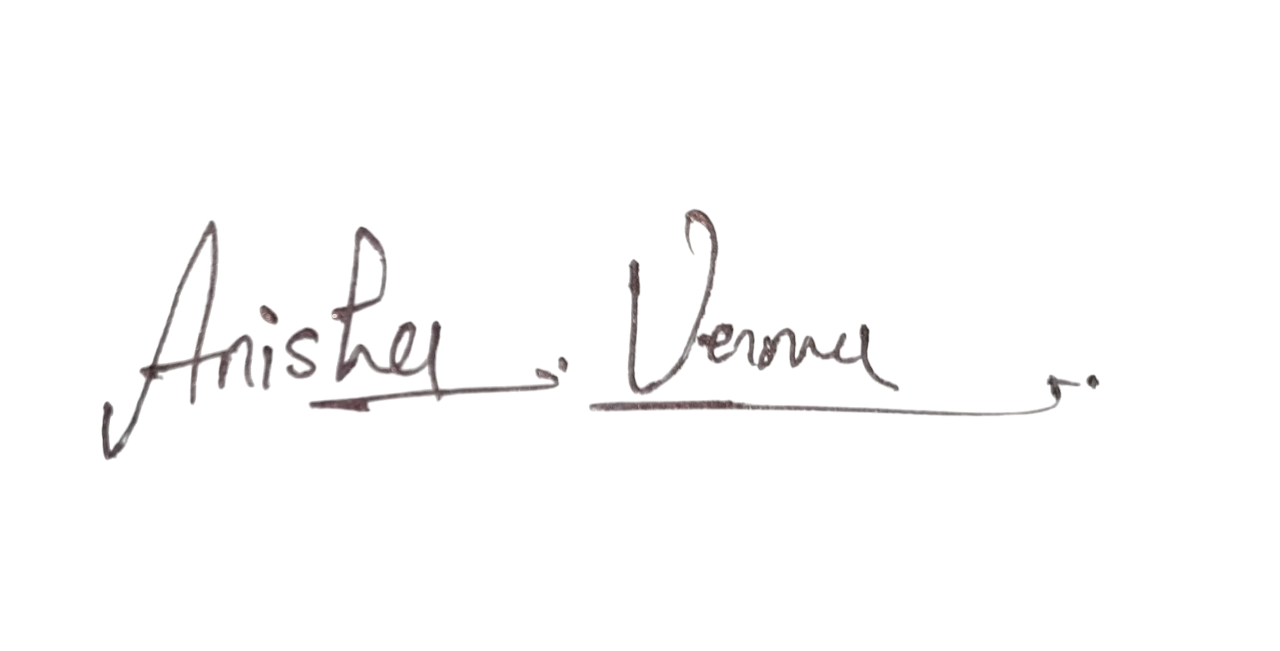 Anisha Verma